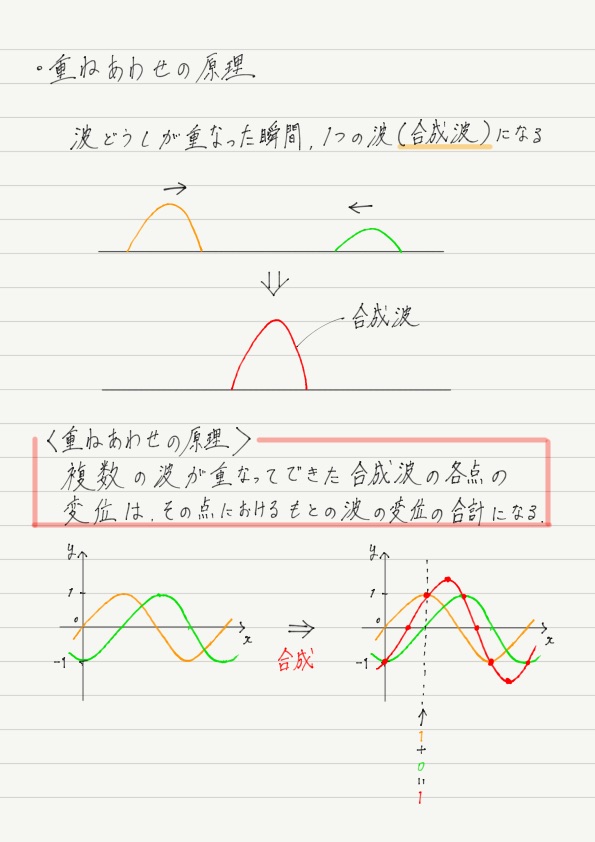 ・重ねあわせの原理
波どうしが重なった瞬間,1つの波(合成波)になる
→
←
⇓
合成波
〈重ねあわせの原理〉
複数の波が重なってできた合成波の各点の
変位は,その点におけるもとの波の変位の合計になる.
y
1
0
-1
x
⇒
合成
y
1
0
-1
x
↑
1
+
0
=
1